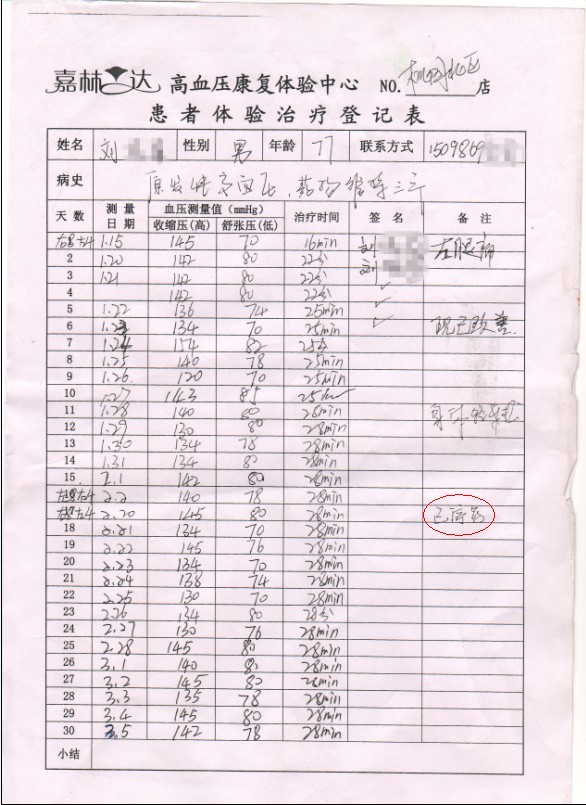 嘉林 达 高血压康复体验中心 NO. 店
患者体验治疗登记表
姓名 刘 性别 男 年龄 77 联系方式 1509869
病史 原发性高血压,药物维持三年
天数 测量日期 血压测量值(mmHg) 收缩压(高) 舒张压(低) 治疗时间 签名 备注
1.15 145 70 16min 刘 左腿痛
2 1.20 142 80 22分 刘
3 1.21 142 80 22分 ✓
4 142 80 22分 ✓
5 1.22 136 74 25min
6 1.23 134 70 25min ✓ 现已改善.
7 1.24 154 82 25分
8 1.25 140 78 25min
9 1.26 120 70 25min
10 1.27 143 85 25min
11 1.28 140 80 28min
12 1.29 130 80 28min
13 1.30 134 78 28min
14 1.31 134 80 28min
15 2.1 142 80 28min
2.2 140 78 28min
2.20 145 80 28min 已停药
18 2.21 134 70 28min
19 2.22 145 76 28min
20 2.23 134 70 28min
21 2.24 138 74 28min
22 2.25 130 70 28min
23 2.26 134 80 28分
24 2.27 130 76 28min
25 2.28 145 80 28min
26 3.1 140 80 28min
27 3.2 145 80 28min
28 3.3 135 78 28min
29 3.4 145 80 28min
30 3.5 142 78 28min
小结